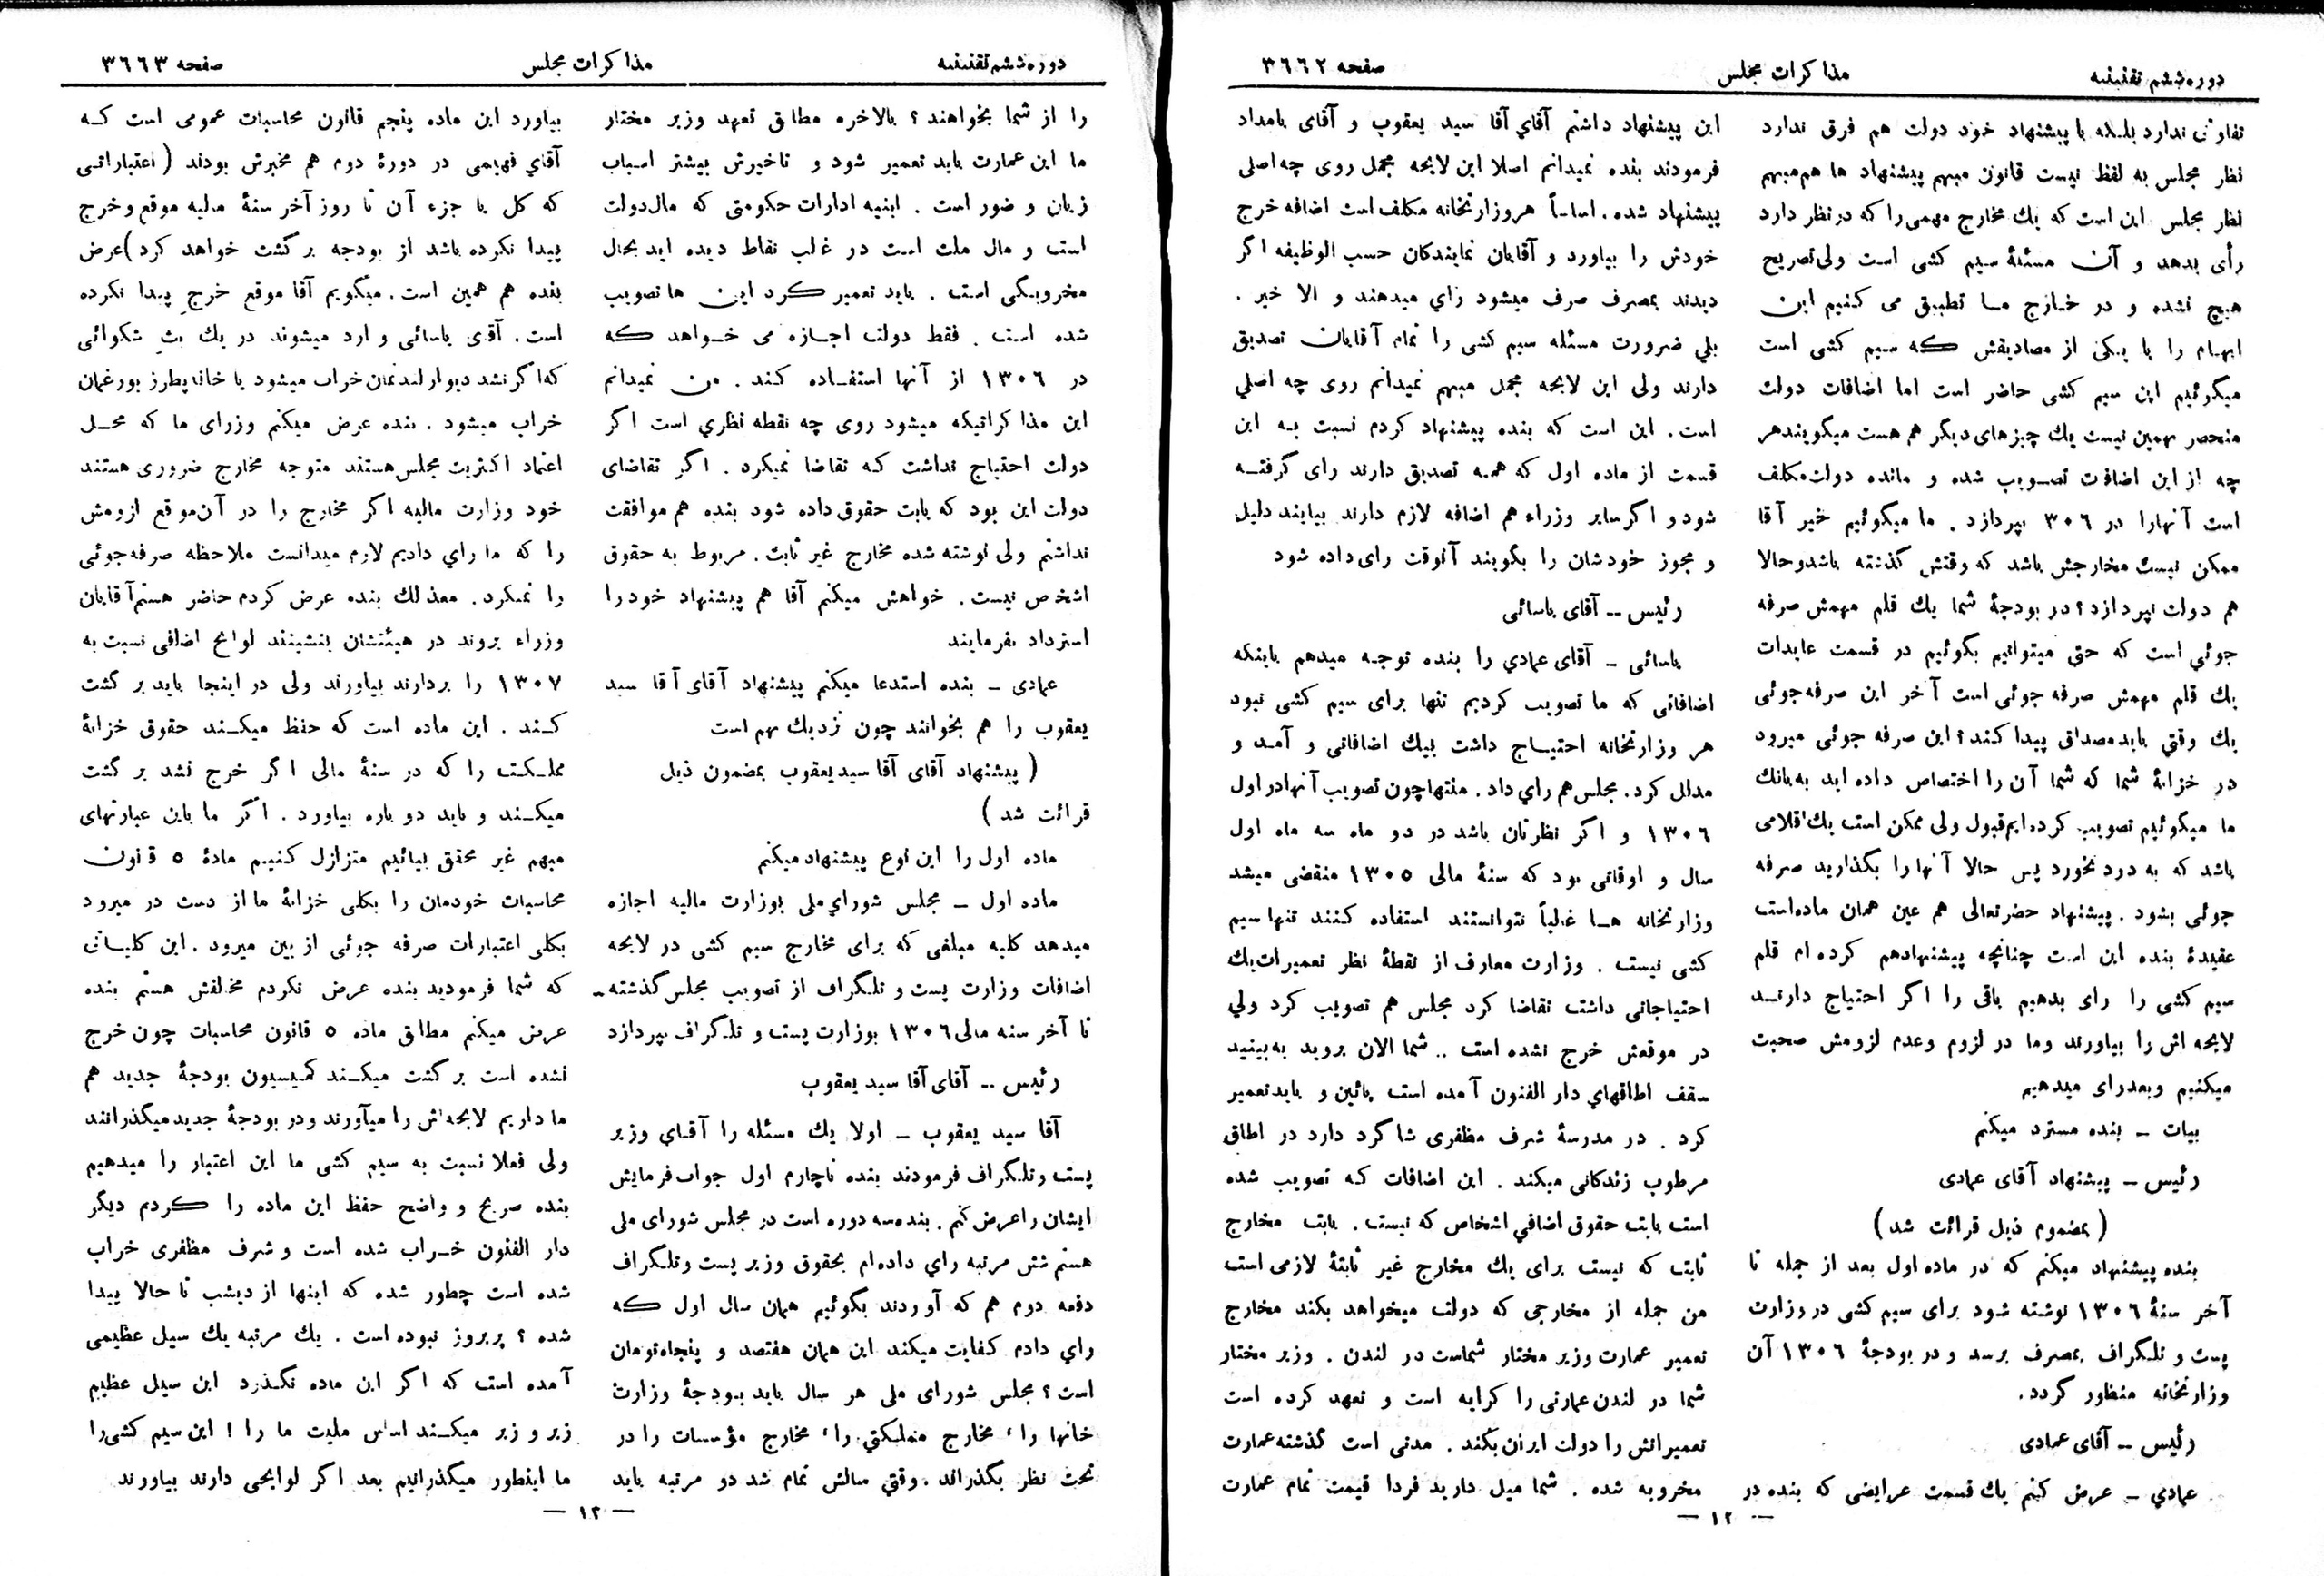 دوره ششم تقنینیه
مذاکرات مجلس
صفحه ۳٦٦۲
تفاوتی ندارد بلکه با پیشنهاد خود دولت هم فرق ندارد
نظر مجلس به لفظ نیست قانون مبهم پیشنهاد ها هم مبهم
نظر مجلس این است که یك مخارج مهمی را که در نظر دارد
رأی بدهد و آن مسئلهٔ سیم کشی است ولی تصریح
هیچ نشده و در خارج ما تطبیق می کنیم این
ابهام را با یکی از مصادیقش که سیم کشی است
میگوئیم این سیم کشی حاضر است اما اضافات دولت
منحصر بهمین نیست یك چیزهای دیگر هم هست میگویند هر
چه از این اضافات تصویب شده و مانده دولت مکلف
است آنهارا در ۳۰٦ بپردازد . ما میگوئیم خیر آقا
ممکن نیست مخارجش باشد که وقتش گذشته باشد و حالا
هم دولت بپردازد؟ در بودجهٔ شما یك قلم مهمش صرفه
جوئی است که حتی میتوانیم بگوئیم در قسمت عایدات
یك قلم مهمش صرفه جوئی است آخر این صرفه جوئی
یك وقتی باید مصداق پیدا کند؟ این صرفه جوئی میرود
در خزانهٔ شما که شما آن را اختصاص داده اید به بانك
ما میگوئیم تصویب کرده ایم قبول ولی ممکن است یك اقلامی
باشد که به درد نخورد پس حالا آنها را بگذارید صرفه
جوئی بشود . پیشنهاد حضرتعالی هم عین همان ماده است
عقیدهٔ بنده این است چنانچه پیشنهادهم کرده ام قلم
سیم کشی را رای بدهیم باقی را اگر احتیاج دارند
لایحه اش را بیاورند وما در لزوم وعدم لزومش صحبت
میکنیم وبعد رای میدهیم
بیات ـ بنده مسترد میکنم
رئیس ـ پیشنهاد آقای عمادی
( بمضموم ذیل قرائت شد )
بنده پیشنهاد میکنم که در ماده اول بعد از جمله تا
آخر سنهٔ ۱۳۰٦ نوشته شود برای سیم کشی در وزارت
پست و تلگراف بمصرف برسد و در بودجهٔ ۱۳۰٦ آن
وزارتخانه منظور گردد.
رئیس ــ آقای عمادی
عمادي ـ عرض کنم یك قسمت عرایضی که بنده در
این پیشنهاد داشتم آقاي آقا سید یعقوب و آقای بامداد
فرمودند بنده نمیدانم اصلا این لایحه مجمل روی چه اصلی
پیشنهاد شده . اساساً هر وزارتخانه مکلف است اضافه خرج
خودش را بیاورد و آقایان نمایندگان حسب الوظیفه اگر
دیدند بمصرف صرف میشود رای میدهند و الا خیر .
بلي ضرورت مسئله سیم کشی را تمام آقایان تصدیق
دارند ولی این لایحه مجمل مبهم نمیدانم روی چه اصلي
است . این است که بنده پیشنهاد کردم نسبت به این
قسمت از ماده اول که همه تصدیق دارند رای گرفته
شود و اگر سایر وزراء هم اضافه لازم دارند بیایند دلیل
و مجوز خودشان را بگویند آنوقت رای داده شود
رئیس ــ آقای یاسائی
یاسائی ـ آقای عمادي را بنده توجه میدهم باینکه
اضافاتی که ما تصویب کردیم تنها برای سیم کشی نبود
هر وزارتخانه احتیاج داشت بیك اضافاتی و آمد و
مدلل کرد . مجلس هم راي داد . منتها چون تصویب آنها در اول
۱۳۰٦ و اگر نظرتان باشد در دو ماه سه ماه اول
سال و اوقاتی بود که سنهٔ مالی ۱۳۰٥ منقضی میشد
وزارتخانه ها غالباً نتوانستند استفاده کنند تنها سیم
کشی نیست . وزارت معارف از نقطهٔ نظر تعمیرات یك
احتیاجاتی داشت تقاضا کرد مجلس هم تصویب کرد ولی
در موقعش خرج نشده است .. شما الان بروید به بینید
سقف اطاقهاي دار الفنون آمده است پائین و باید تعمیر
کرد . در مدرسهٔ شرف مظفری شاگرد دارد در اطاق
مرطوب زندگانی میکند . این اضافات که تصویب شده
است بابت حقوق اضافي اشخاص که نیست . بابت مخارج
ثابت که نیست برای یك مخارج غیر ثابتهٔ لازمی است
من جمله از مخارجی که دولت میخواهد بکند مخارج
تعمیر عمارت وزیر مختار شماست در لندن . وزیر مختار
شما در لندن عمارتی را کرایه است و تعهد کرده است
تعمیراتش را دولت ایران بکند . مدتی است گذشته عمارت
مخروبه شده . شما میل دارید فردا قیمت تمام عمارت
— ۱۲ —
دوره ششم تقنینیه
مذاکرات مجلس
صفحه ۳٦٦۳
را از شما بخواهند ؟ بالاخره مطابق تعهد وزیر مختار
ما این عمارت باید تعمیر شود و تاخیرش بیشتر اسباب
زیان و ضرر است . ابنیه ادارات حکومتی که مال دولت
است و مال ملت است در غالب نقاط دیده اید بحال
مخروبگی است . باید تعمیر کرد این ها تصویب
شده است . فقط دولت اجازه می خواهد که
در ۱۳۰٦ از آنها استفاده کند . من نمیدانم
این مذاکراتیکه میشود روی چه نقطه نظري است اگر
دولت احتیاج نداشت که تقاضا نمیکرد . اگر تقاضای
دولت این بود که بابت حقوق داده شود بنده هم موافقت
نداشتم ولی نوشته شده مخارج غیر ثابت . مربوط به حقوق
اشخاص نیست . خواهش میکنم آقا هم پیشنهاد خود را
استرداد بفرمایند
عمادی ـ بنده استدعا میکنم پیشنهاد آقای آقا سید
یعقوب را هم بخوانند چون نزدیك بهم است
( پیشنهاد آقای آقا سید یعقوب بمضمون ذیل
قرائت شد )
ماده اول را این نوع پیشنهاد میکنم
ماده اول ـ مجلس شورای ملی بوزارت مالیه اجازه
میدهد کلیه مبلغی که برای مخارج سیم کشی در لایحه
اضافات وزارت پست و تلگراف از تصویب مجلس گذشته
تا آخر سنه مالی ۱۳۰٦ بوزارت پست و تلگراف بپردازد
رئیس ــ آقای آقا سید یعقوب
آقا سید یعقوب ـ اولا یك مسئله را آقاي وزیر
پست و تلگراف فرمودند بنده ناچارم اول جواب فرمایش
ایشان را عرض کنم . بنده سه دوره است در مجلس شورای ملی
هستم شش مرتبه راي داده ام بحقوق وزیر پست و تلگراف
دفعه دوم هم که آوردند بگوئیم همان سال اول که
راي دادم کفایت میکند این همان هفتصد و پنجاه تومان
است ؟ مجلس شورای ملی هر سال باید بودجهٔ وزارت
خانها را ، مخارج مملکتي را ، مخارج مؤسسات را در
تحت نظر بگذراند . وقتي سالش تمام شد دو مرتبه باید
بیاورد این ماده پنجم قانون محاسبات عمومی است که
آقاي فهیمی در دورهٔ دوم هم مخبرش بودند ( اعتباراتی
که کل یا جزء آن تا روز آخر سنهٔ مالیه موقع و خرج
پیدا نکرده باشد از بودجه برگشت خواهد کرد ) عرض
بنده هم همین است . میگویم آقا موقع خرج پیدا نکرده
است . آقای یاسائی وارد میشوند در یك شکوائی
که اگر نشد دیوار لندنمان خراب میشود یا خانه پطرز بورغمان
خراب میشود . بنده عرض میکنم وزرای ما که محل
اعتماد اکثریت مجلس هستند متوجه مخارج ضروری هستند
خود وزارت مالیه اگر مخارج را در آن موقع لزومش
را که ما راي دادیم لازم میدانست ملاحظه صرفه جوئی
را نمیکرد . معذلك بنده عرض کردم حاضر هستم آقایان
وزراء بروند در هیئتشان بنشینند لوایح اضافی نسبت به
۱۳۰۷ را بردارند بیاورند ولی در اینجا باید برگشت
کند . این ماده است که حفظ میکند حقوق خزانهٔ
مملکت را که در سنهٔ مالی اگر خرج نشد برگشت
میکند و باید دوباره بیاورد . اگر ما باین عبارتهای
مبهم غیر محقق بیائیم متزلزل کنیم مادهٔ ٥ قانون
محاسبات خودمان را بکلی خزانهٔ ما از دست در میرود
بکلی اعتبارات صرفه جوئی از بین میرود . این کلیاتی
که شما فرمودید بنده عرض نکردم مخالفش هستم بنده
عرض میکنم مطابق ماده ٥ قانون محاسبات چون خرج
نشده است برگشت میکند کمیسیون بودجهٔ جدید هم
ما داریم لایحه اش را میآورند و در بودجهٔ جدید میگذرانند
ولی فعلا نسبت به سیم کشی ما این اعتبار را میدهیم
بنده صریح و واضح حفظ این ماده را کردم دیگر
دار الفنون خراب شده است و شرف مظفری خراب
شده است چطور شده که اینها از دیشب تا حالا پیدا
شده ؟ پریروز نبوده است . یك مرتبه یك سیل عظیمی
آمده است که اگر این ماده نگذرد این سیل عظیم
زیر و زبر میکند اساس ملیت ما را ! این سیم کشی را
ما اینطور میگذرانیم بعد اگر لوایحی دارند بیاورند
— ۱۳ —